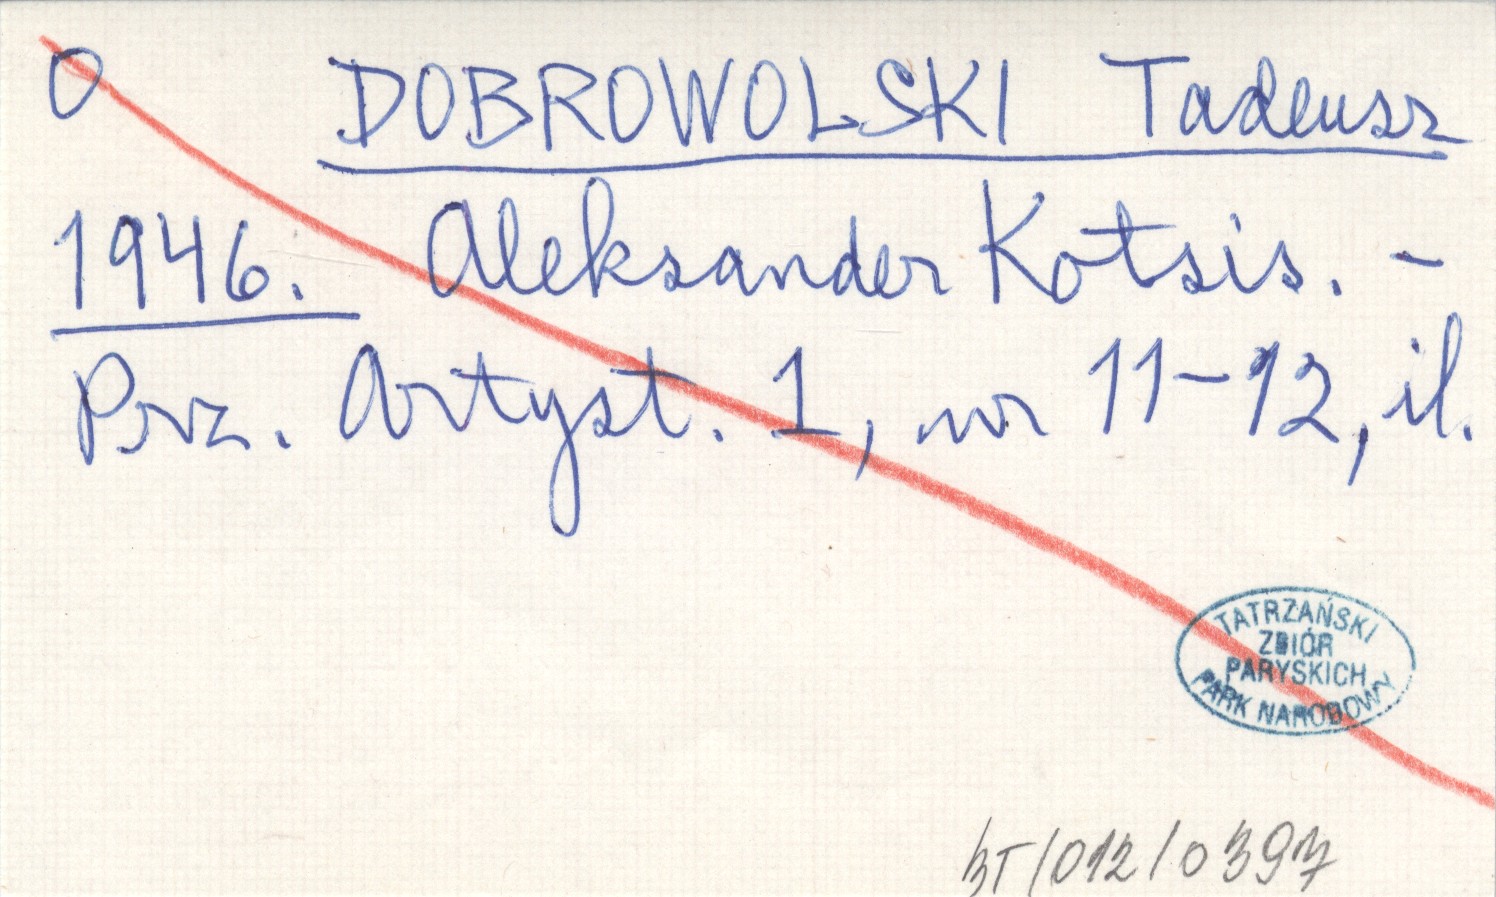 O DOBROWOLSKI Tadeusz
1946. Aleksander Kotsis. -
Prz. Artyst. 1, nr 11-12, il.
TATRZAŃSKI
ZBIÓR
PARYSKICH
PARK NARODOWY
BT/012/0397